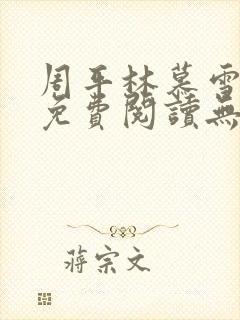 周平林慕雪
免費閱讀無
蔣宗文